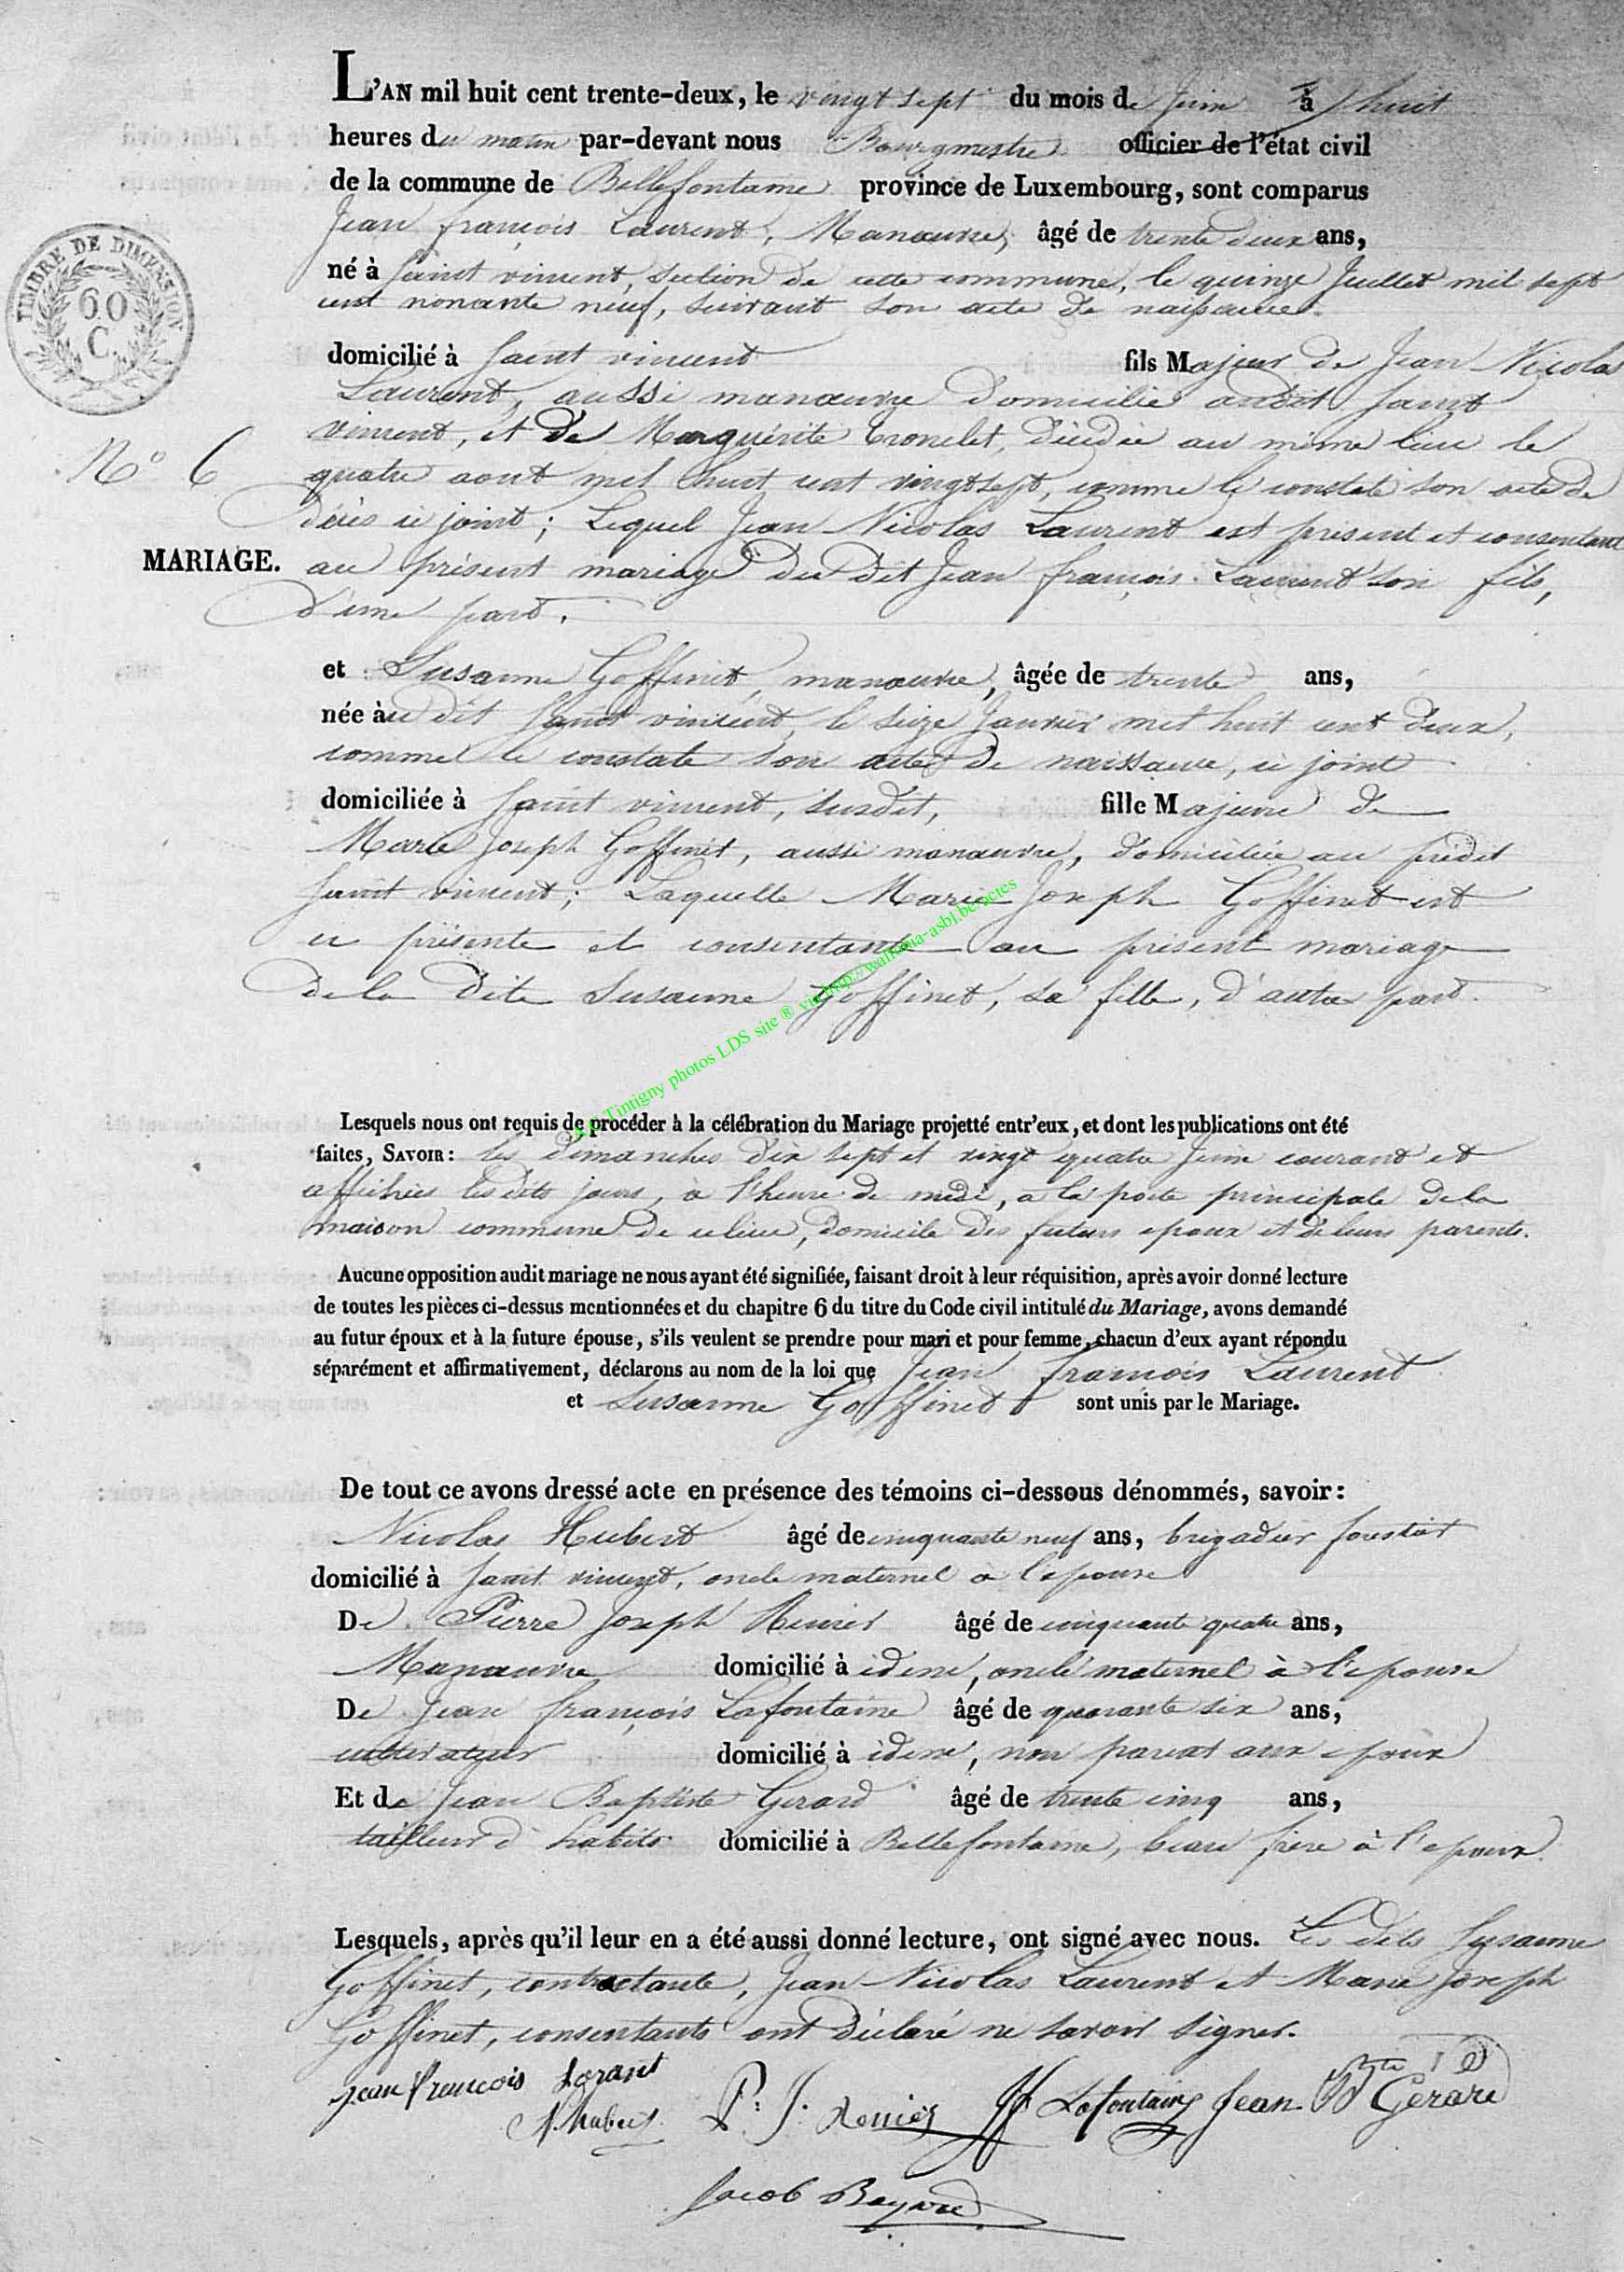 L'AN mil huit cent trente-deux, le vingt sept du mois de Juin à huit
heures du matin par-devant nous Bourgmestre officier de l'état civil
de la commune de Bellefontaine province de Luxembourg, sont comparus
Jean françois Laurent, Manœuvre, âgé de trente deux ans,
né à Saint vincent, section de cette commune, le quinze Juillet mil sept
cent nonante neuf, suivant son acte de naissance.
TIMBRE DE DIMENSION
60
C.
domicilié à Saint vincent fils Majeur de Jean Nicolas
Laurent, aussi manœuvre domicilié audit Saint
vincent, et de Marguérite Tronelet, décédée au même lieu le
N° 6
quatre aout mil huit cent vingt sept, comme le constate son acte de
décès ci joint; Lequel Jean Nicolas Laurent est présent et consentant
MARIAGE.
au présent mariage du dit Jean françois Laurent son fils,
d'une part.
et Susanne Goffinet, manœuvre, âgée de trente ans,
née au dit Saint vincent, le seize Janvier mil huit cent deux,
comme le constate son acte de naissance, ci joint
domiciliée à Saint vincent, susdit, fille Majeure de
Marie Joseph Goffinet, aussi manœuvre, domiciliée au prédit
Saint vincent; Laquelle Marie Joseph Goffinet est
ci présente et consentante au présent mariage
de la dite Susanne Goffinet, sa fille, d'autre part.
A.C Tintigny photos LDS site ® via http://wallonia-asbl.be/actes
Lesquels nous ont requis de procéder à la célébration du Mariage projetté entr'eux, et dont les publications ont été
faites, SAVOIR: les dimanches dix sept et vingt quatre Juin courant et
affichées les dits jours, à l'heure de midi, a la porte principale de la
maison commune de ce lieu, domicile des futurs epoux et de leurs parents.
Aucune opposition audit mariage ne nous ayant été signifiée, faisant droit à leur réquisition, après avoir donné lecture
de toutes les pièces ci-dessus mentionnées et du chapitre 6 du titre du Code civil intitulé du Mariage, avons demandé
au futur époux et à la future épouse, s'ils veulent se prendre pour mari et pour femme, chacun d'eux ayant répondu
séparément et affirmativement, déclarons au nom de la loi que Jean François Laurent
et Susanne Goffinet sont unis par le Mariage.
De tout ce avons dressé acte en présence des témoins ci-dessous dénommés, savoir:
Nicolas Hubert âgé de cinquante neuf ans, brigadier forestier
domicilié à Saint vincent, oncle maternel à l'epouse
De Pierre Joseph Renier âgé de cinquante quatre ans,
Manœuvre domicilié à idem, oncle maternel à l'epouse
De Jean françois Lafontaine âgé de quarante six ans,
cultivateur domicilié à idem, non parent aux epoux
Et de Jean Baptiste Gerard âgé de trente cinq ans,
tailleur d'habits domicilié à Bellefontaine, beau frère à l'epoux.
Lesquels, après qu'il leur en a été aussi donné lecture, ont signé avec nous. Les dits Susanne
Goffinet, contractante, Jean Nicolas Laurent et Marie Joseph
Goffinet, consentants ont déclaré ne savoir signer.
Jean françois Lorant
N. Hubert P: J: Renier JF Lafontaine Jean Bte Gerard
Jacob